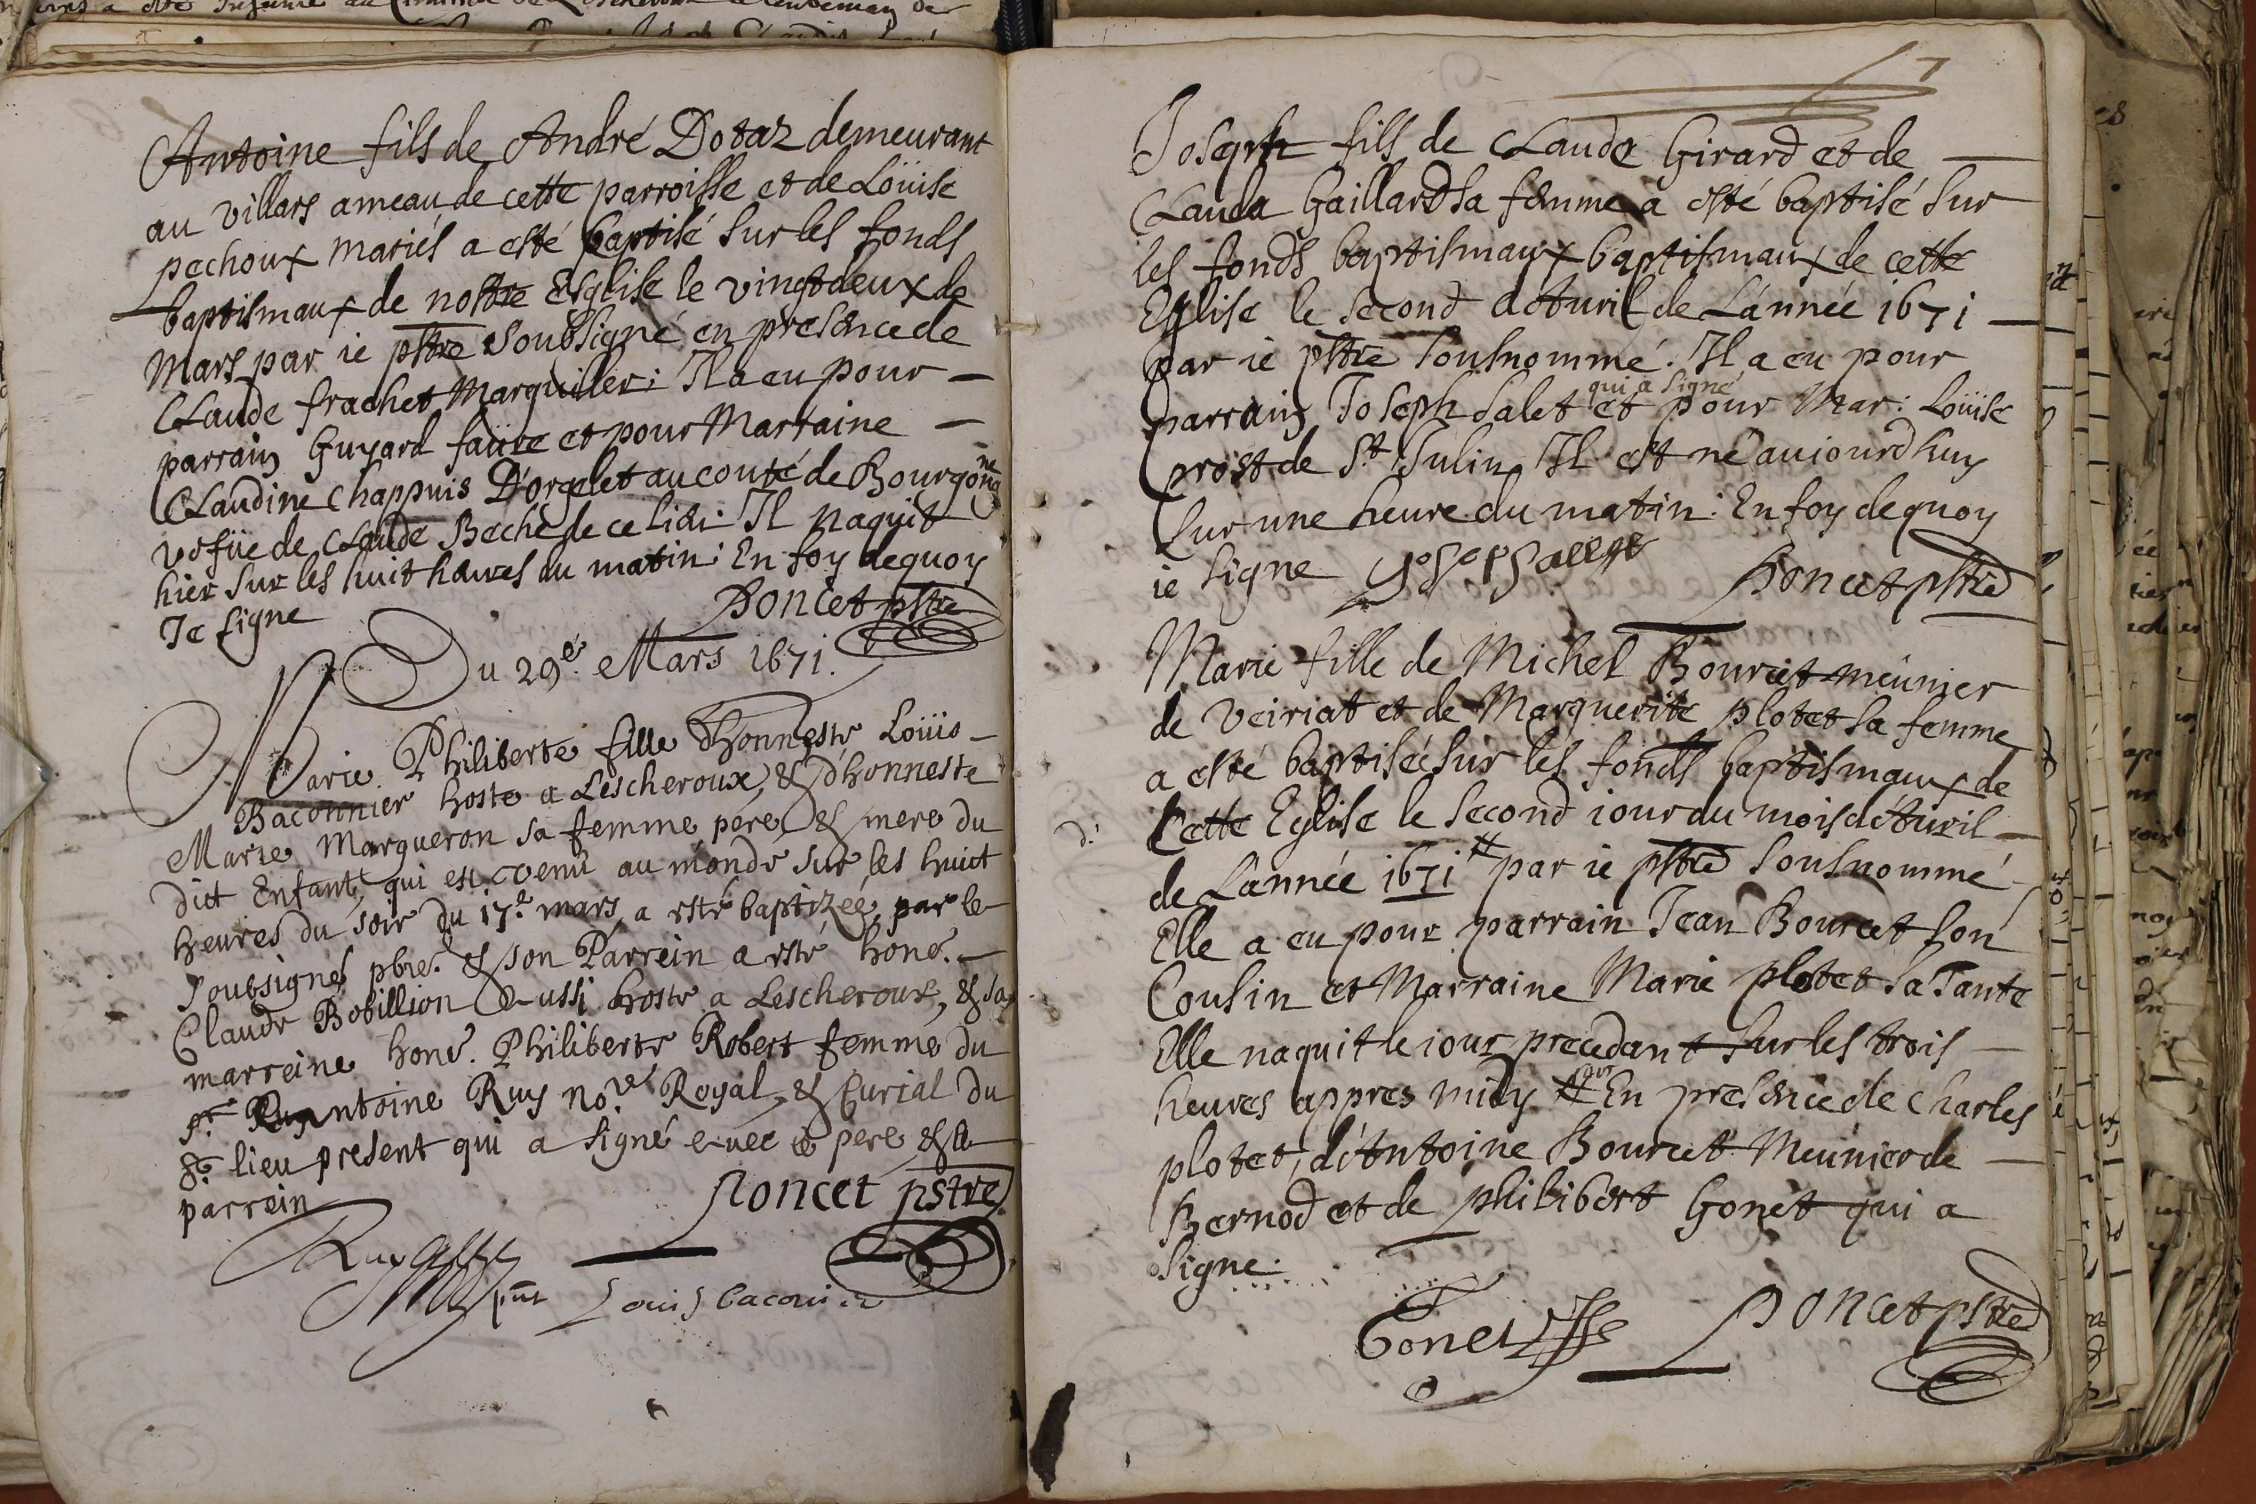 Antoine fils de André Dotaz demeurant
au villars ameau de cette parroisse et de Loüise
pechoux mariés a esté baptisé sur les fonds
baptismaux de nostre Esglise le vingtdeux de
Mars par ie pstre soubsigné en presence de
Claude frachet Marguiller: Il a eu pour
parrain Guyard faure et pour Marraine
Claudine Chappuis D'orgelet au conté de Bourgonne
vefüe de Claude Beché de ce lieu: Il naquit
hier sur les huit heures du matin: En foy dequoy
Ie signe
Poncet pstre
Du 29e. Mars 1671.
Marie Philiberte fille d'honneste Loüis
Baconnier hoste a Lescheroux, & d'honneste
Marie Margueron sa femme pere & mere du
dict Enfant, qui est venu au monde sur les huict
heures du soir du 17e mars, a esté baptizée par le
soubsigné pbre. & son Parrein a esté hone.
Claude Bobillion aussi hoste a Lescheroux, & sa
marreine hone. Philiberte Robert femme du
sr. Antoine Ruy nore Royal, & Curial du
lieu present qui a signé avec le pere & le
parrein
Poncet pstre
Ruy
Louis baconier
7
Joseph fils de Claude Girard et de
Clauda Gaillard sa femme a esté baptisé sur
les fonds baptismaux baptismaux de cette
Eglise le second d'Avril de L'année 1671
par ie pstre sousnommé. Il a eu pour
qui a signé
parrain Joseph Salet et pour Mar: Loüise
prost de St Julin Il est né auiourd'huy
sur une heure du matin: En foy dequoy
ie signe
Poncet pstre
Marie fille de Michel Bourcet meünier
de veiriat et de Marguerite plotet sa femme
a esté baptisée sur les fonds baptismaux de
Cette Eglise le second iour du mois d'Avril
de L'année 1671 par ie pstre sousnommé
Elle a eu pour parrain Jean Bourcet son
Cousin et Marraine Marie plotet sa Tante
Elle naquit le iour precedant sur les trois
heures appres midy En presence de Charles
plotet, d'Antoine Bourcet Meünier de
Bernod et de philibert Gonet qui a
signe.
Gonet
Poncet pstre